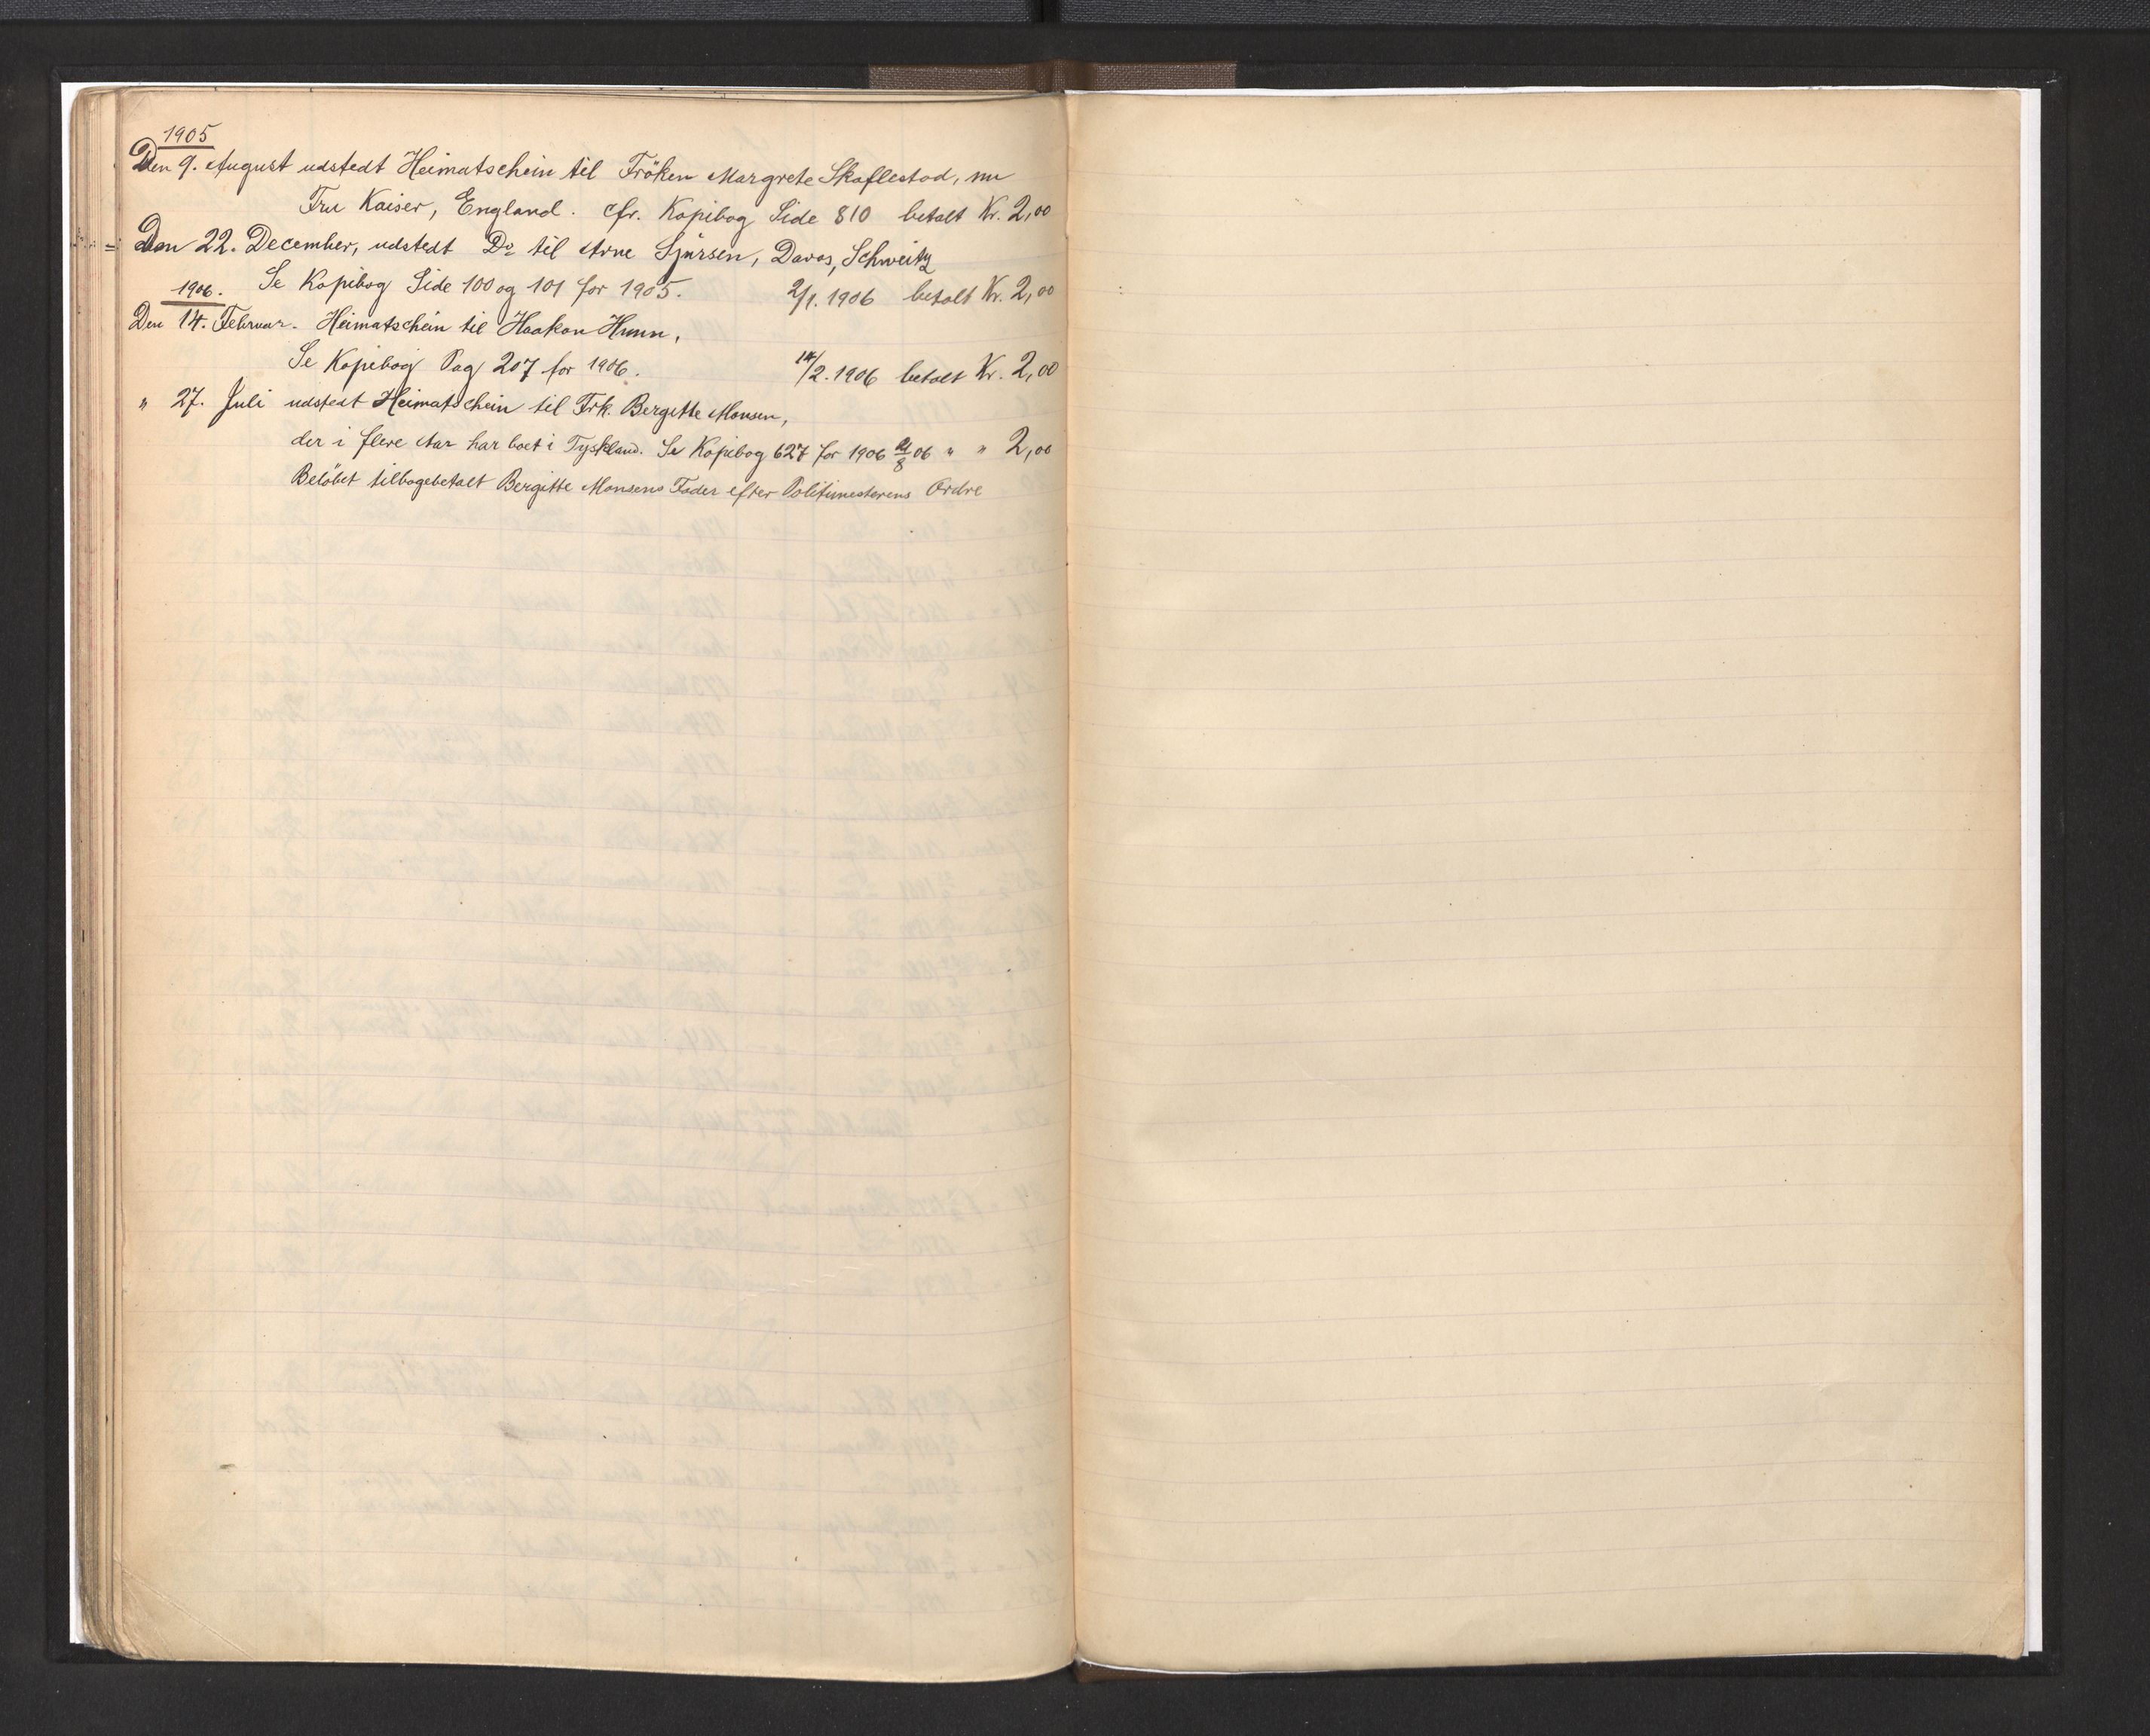 1905
Den 9. August udstedt Heimatschein til Fröken Margrete Skaflestad, nu
Fru Kaiser, England. cfr. Kopibog Side 810 betalt Kr. 2,00
Den 22. December, udstedt Do til Arne Sjursen, Davos, Schweitz
Se Kopibog Side 100 og 101 for 1905. 2/1. 1906 betalt Kr. 2,00
1906.
Den 14. Februar. Heimatschein til Haakon Hunn,
Se Kopibog Pag 207 for 1906. 14/2. 1906 betalt Kr. 2,00
" 27. Juli udstedt Heimatschein til Frk. Bergitte Monsen,
der i flere Aar har boet i Tyskland. Se Kopibog 627 for 1906 /8 06 " " 2,00
Belöbet tilbagebetalt Bergitte Monsens Fader efter Politimesterens Ordre